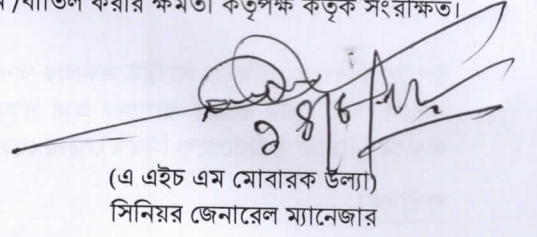 /বাতিল করার ক্ষমতা কর্তৃপক্ষ কর্তৃক সংরক্ষিত।
(এ এইচ এম মোবারক উল্যা)
সিনিয়র জেনারেল ম্যানেজার